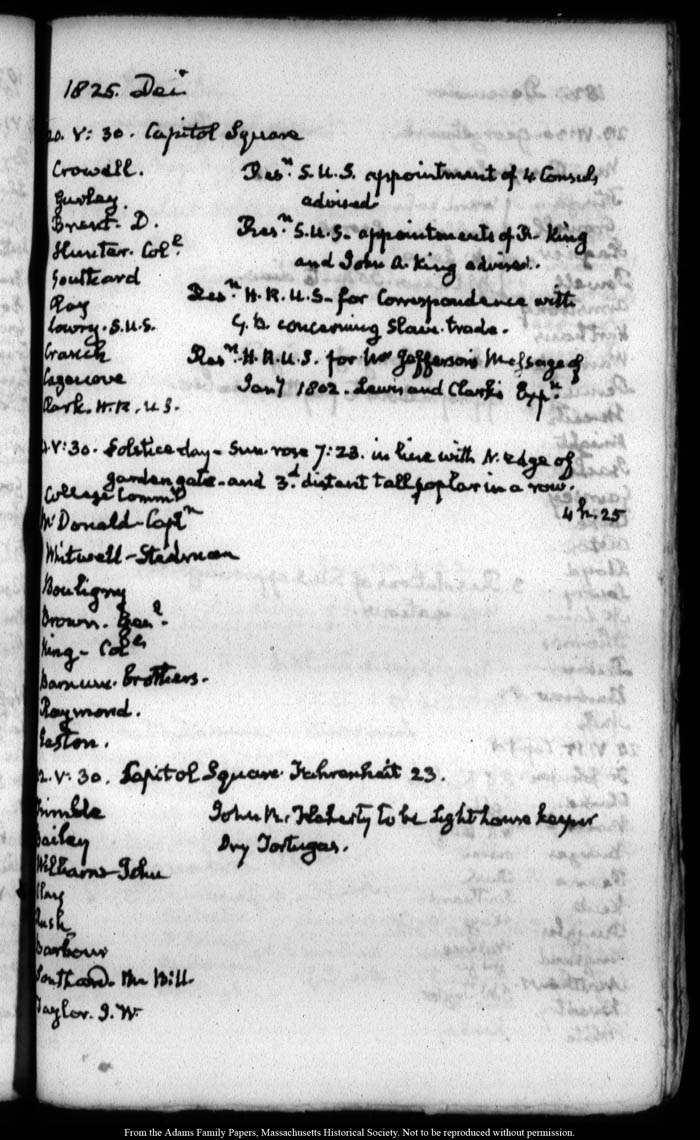 1825. Dec
20. V: 30. Capitol Square
Crowell.
Gurley.
Brent. D.
Hunter. Col.l
Southard
Ray
Lowry. S.U.S.
Cranch
Cazenove
Clark. H.R. U.S.
Res.n S.U.S. appointment of 4 Consuls
advised.
Res.n S.U.S. appointments of R. King
and John A. King advised.
Res.n H.R.U.S. for Correspondence with
G.B. concerning Slave trade.
Res.n H.R.U.S. for Mr Jefferson's Message of
Jany 1802. Lewis and Clark's Exp.n
V: 30. Solstice day. Sun rose 7:23. in line with N. edge of
garden gate and 3.d distant tall poplar in a row.
4h. 25
College Comm.
McDonald Capt.n
Whitwell Stedman
Bouligny
Brown. Gen.l
King Col.
Barnum. brothers.
Raymond.
Easton.
V: 30. Capitol Square. Fahrenheit 23.
Trimble
Bailey
Williams John
Clay
Rush
Barbour
Southard.
Taylor. J.W.
John R. Flaherty to be Light house keeper
Dry Tortugas.
From the Adams Family Papers, Massachusetts Historical Society. Not to be reproduced without permission.